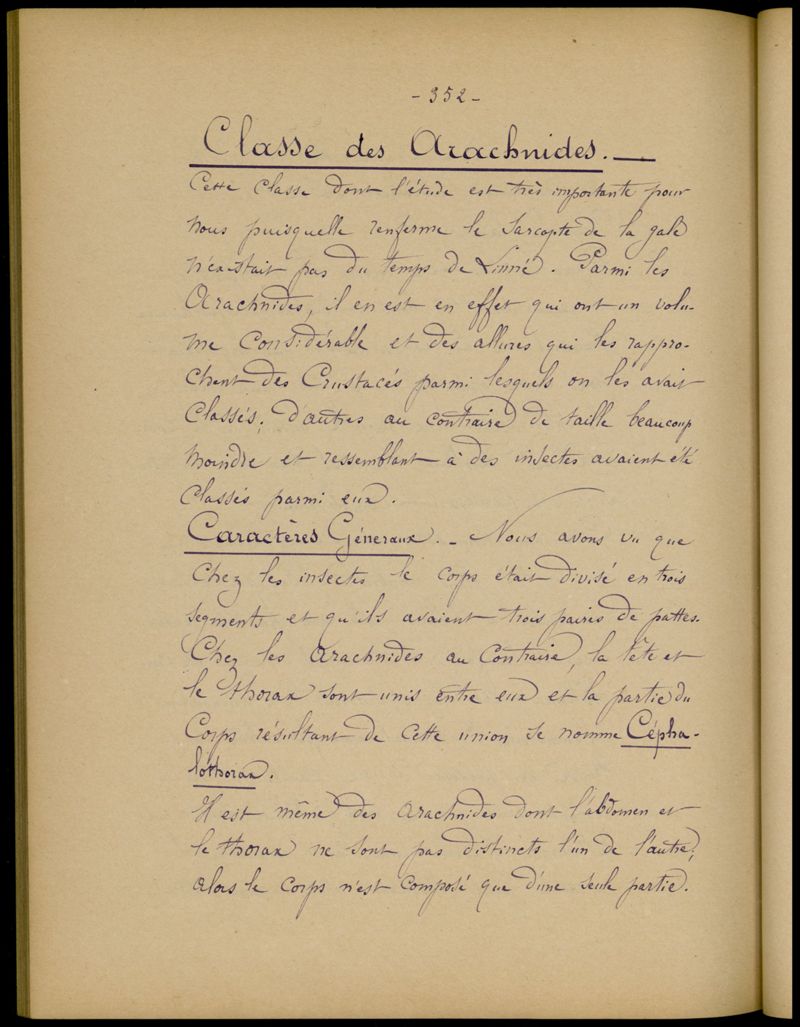 - 352 -
Classe des Arachnides. —
Cette classe dont l'étude est très importante pour
nous puisquelle renferme le Sarcopte de la gale
n'existait pas du temps de Linné. Parmi les
Arachnides, il en est en effet qui ont un volu-
me considérable et des allures qui les rappro-
chent des Crustacés parmi lesquels on les avait
classés; d'autres au contraire de taille beaucoup
moindre et ressemblant à des insectes avaient été
classés parmi eux.
Caractères Géneraux. - Nous avons vu que
chez les insectes le corps était divisé en trois
segments et qu'ils avaient trois paires de pattes.
Chez les Arachnides au contraire, la tête et
le thorax sont unis entre eux et la partie du
Corps résultant de cette union se nomme Cépha-
lothorax.
Il est même des Arachnides dont l'abdomen et
le thorax ne sont pas distincts l'un de l'autre;
alors le corps n'est composé que d'une seule partie.